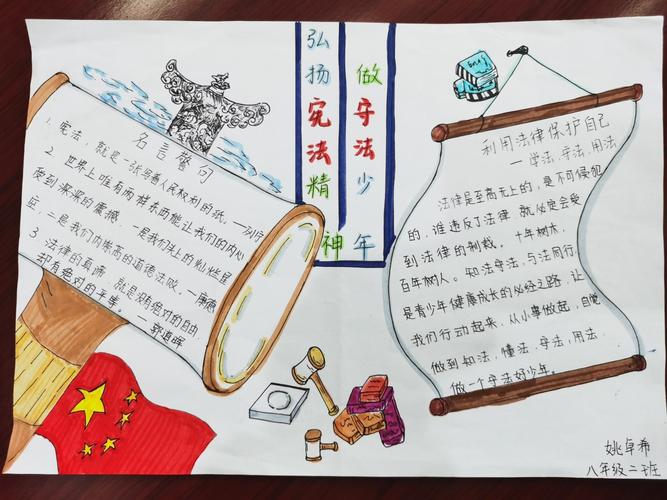 弘扬宪法精神
做守法少年
名言警句
1. 宪法，就是一张写着人民权利的纸。—列宁
2. 世界上唯有两样东西能让我们的内心
受到深深的震撼，一是我们头上的灿烂星
空，二是我们内心崇高的道德法则。—康德
3. 法律的真谛，就是没有绝对的自由
却有绝对的平等。
—郭道晖
利用法律保护自己
—学法，守法，用法
法律是至高无上的，是不可侵犯
的，谁违反了法律 就必定会受
到法律的制裁。十年树木，
百年树人。知法守法，与法同行，
是青少年健康成长的必经之路，让
我们行动起来，从小事做起，自觉
做到知法，懂法，守法，用法
做一个守法好少年。
姚卓希
八年级二班